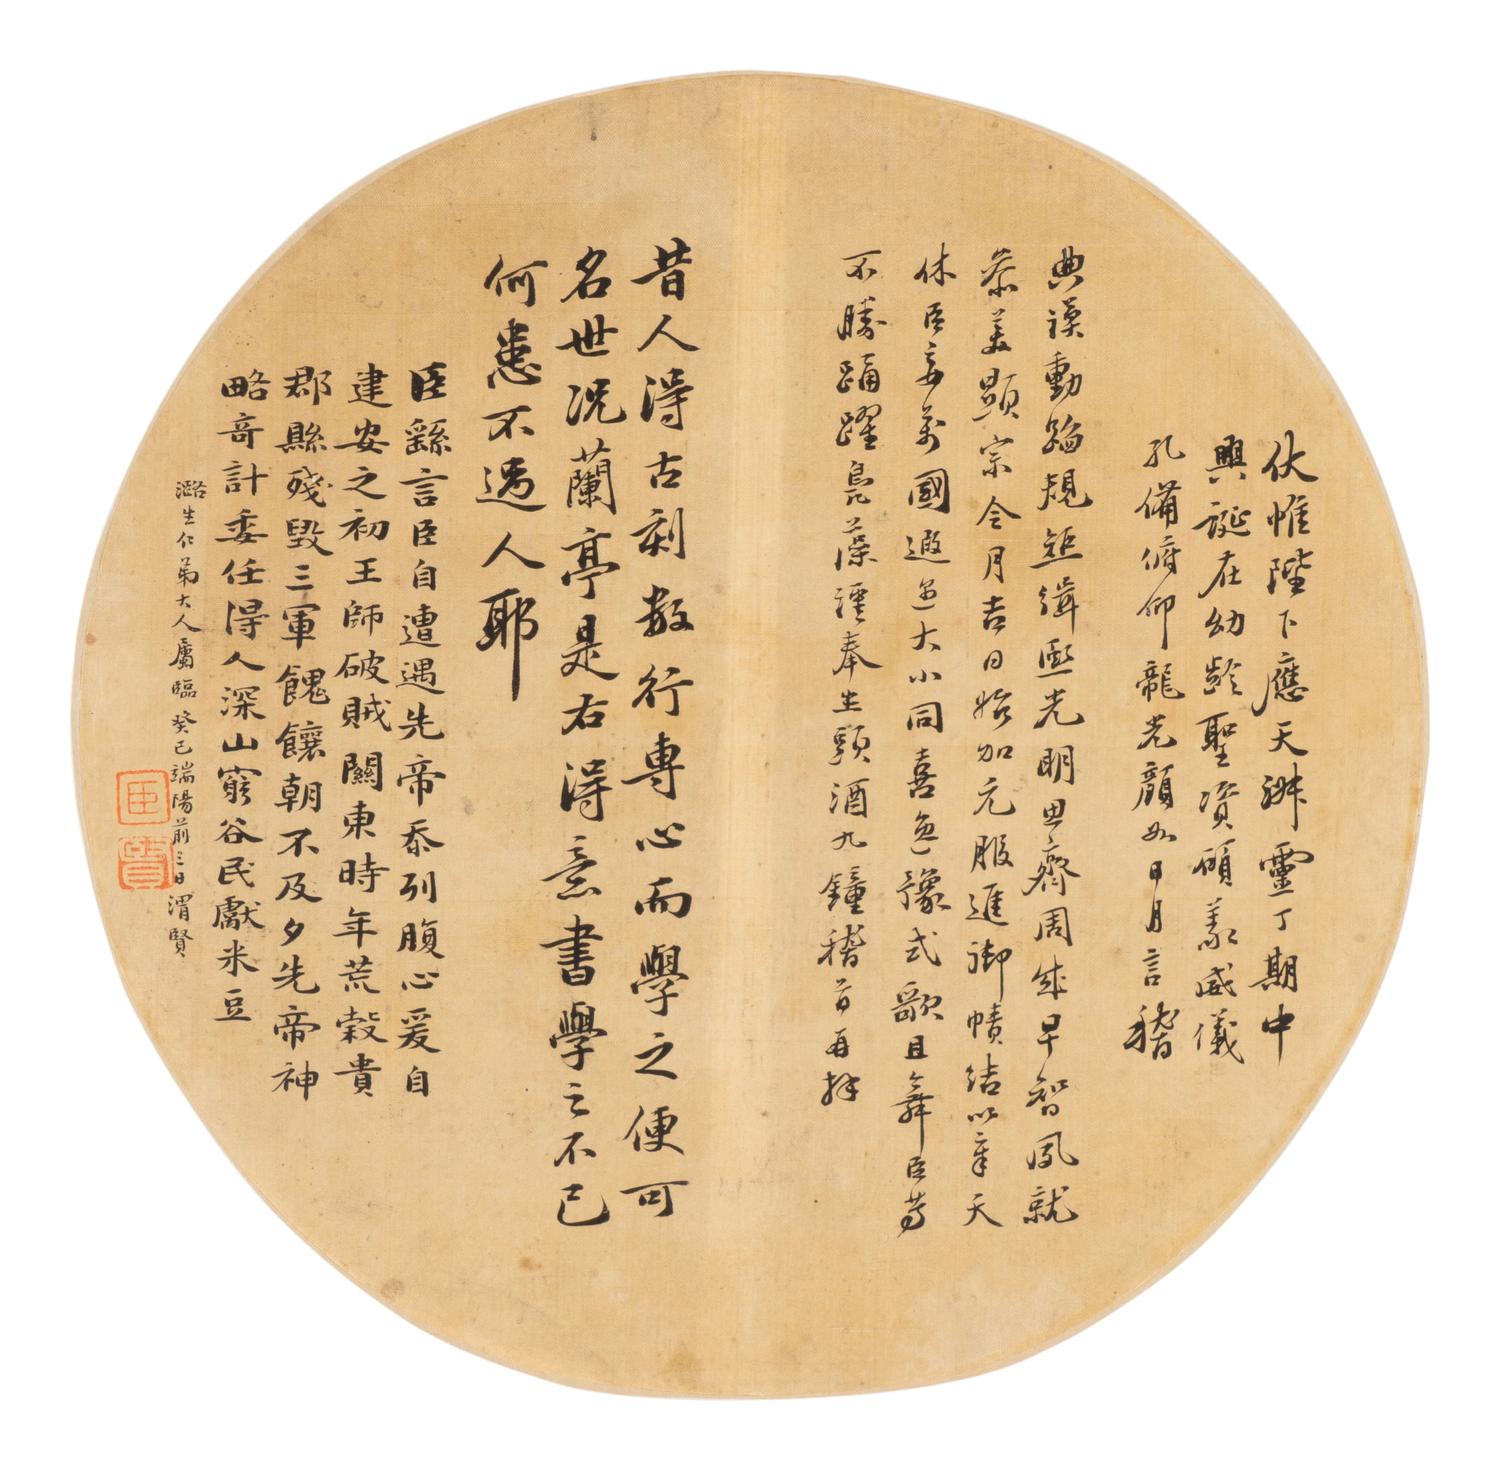 伏惟陛下應天淋靈丁期中
興誕在幼齡聖資碩義威儀
孔備俯仰龍光顏如日月言稽
典謨動蹈規矩緝熙光明思齊周成早智夙就
恭美顯宗令月吉日始加元服進御幘結以章天
休臣妾萬國遐邇大小同喜逸豫式歌且舞臣等
不勝踊躍鳧藻謹奉生頭酒九鐘稽首再拜
昔人得古刻數行專心而學之便可
名世況蘭亭是右得意書學之不已
何患不過人耶
臣繇言臣自遭遇先帝忝列腹心爰自
建安之初王師破賊關東時年荒穀貴
郡縣殘毀三軍餽饟朝不及夕先帝神
略奇計委任得人深山窮谷民獻米豆
潞生仁弟大人屬臨癸巳端陽前三日渭賢